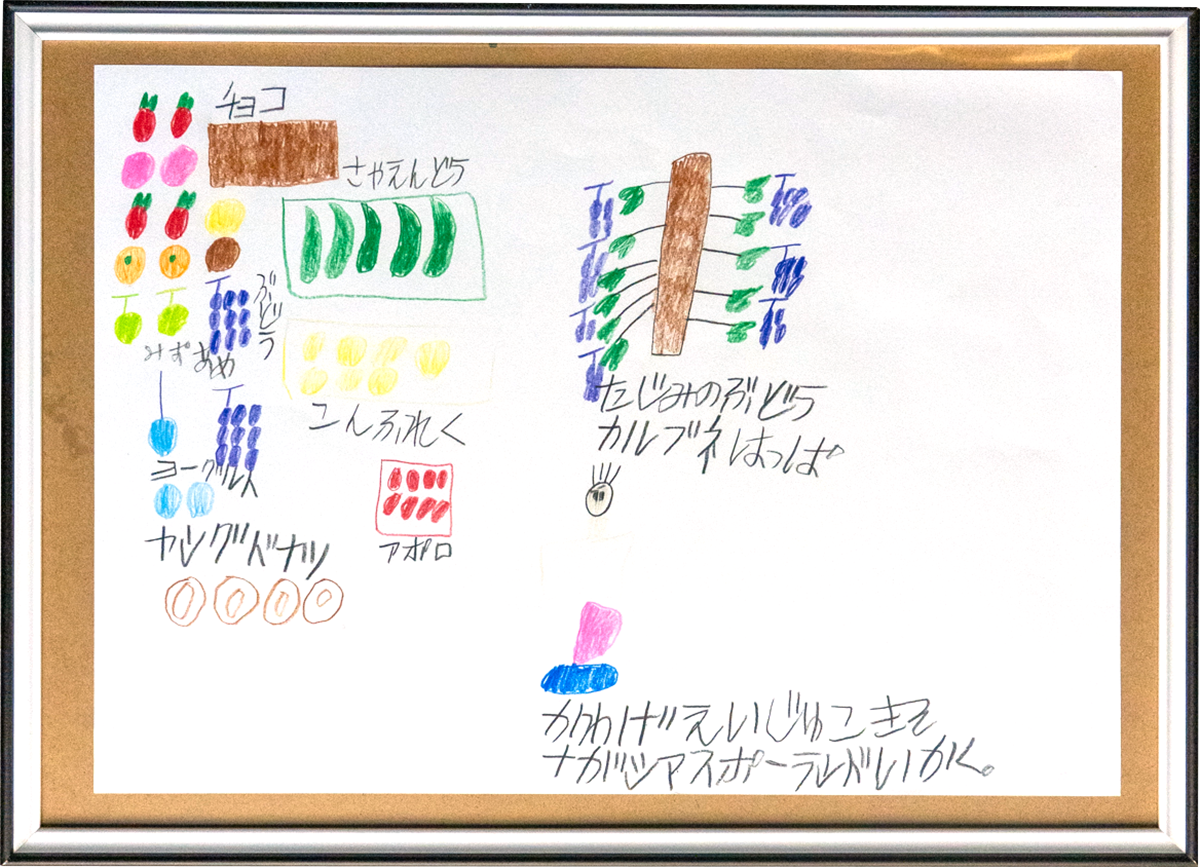 チョコ
さやえんどう
ぶどう
みずあめ
こんふれく
ヨーグルト
アポロ
ヤングドナツ
たじみのぶどう
カルブネはっぱ
かわげえいじゅこきそ
ナガシマスポーランドいかく。